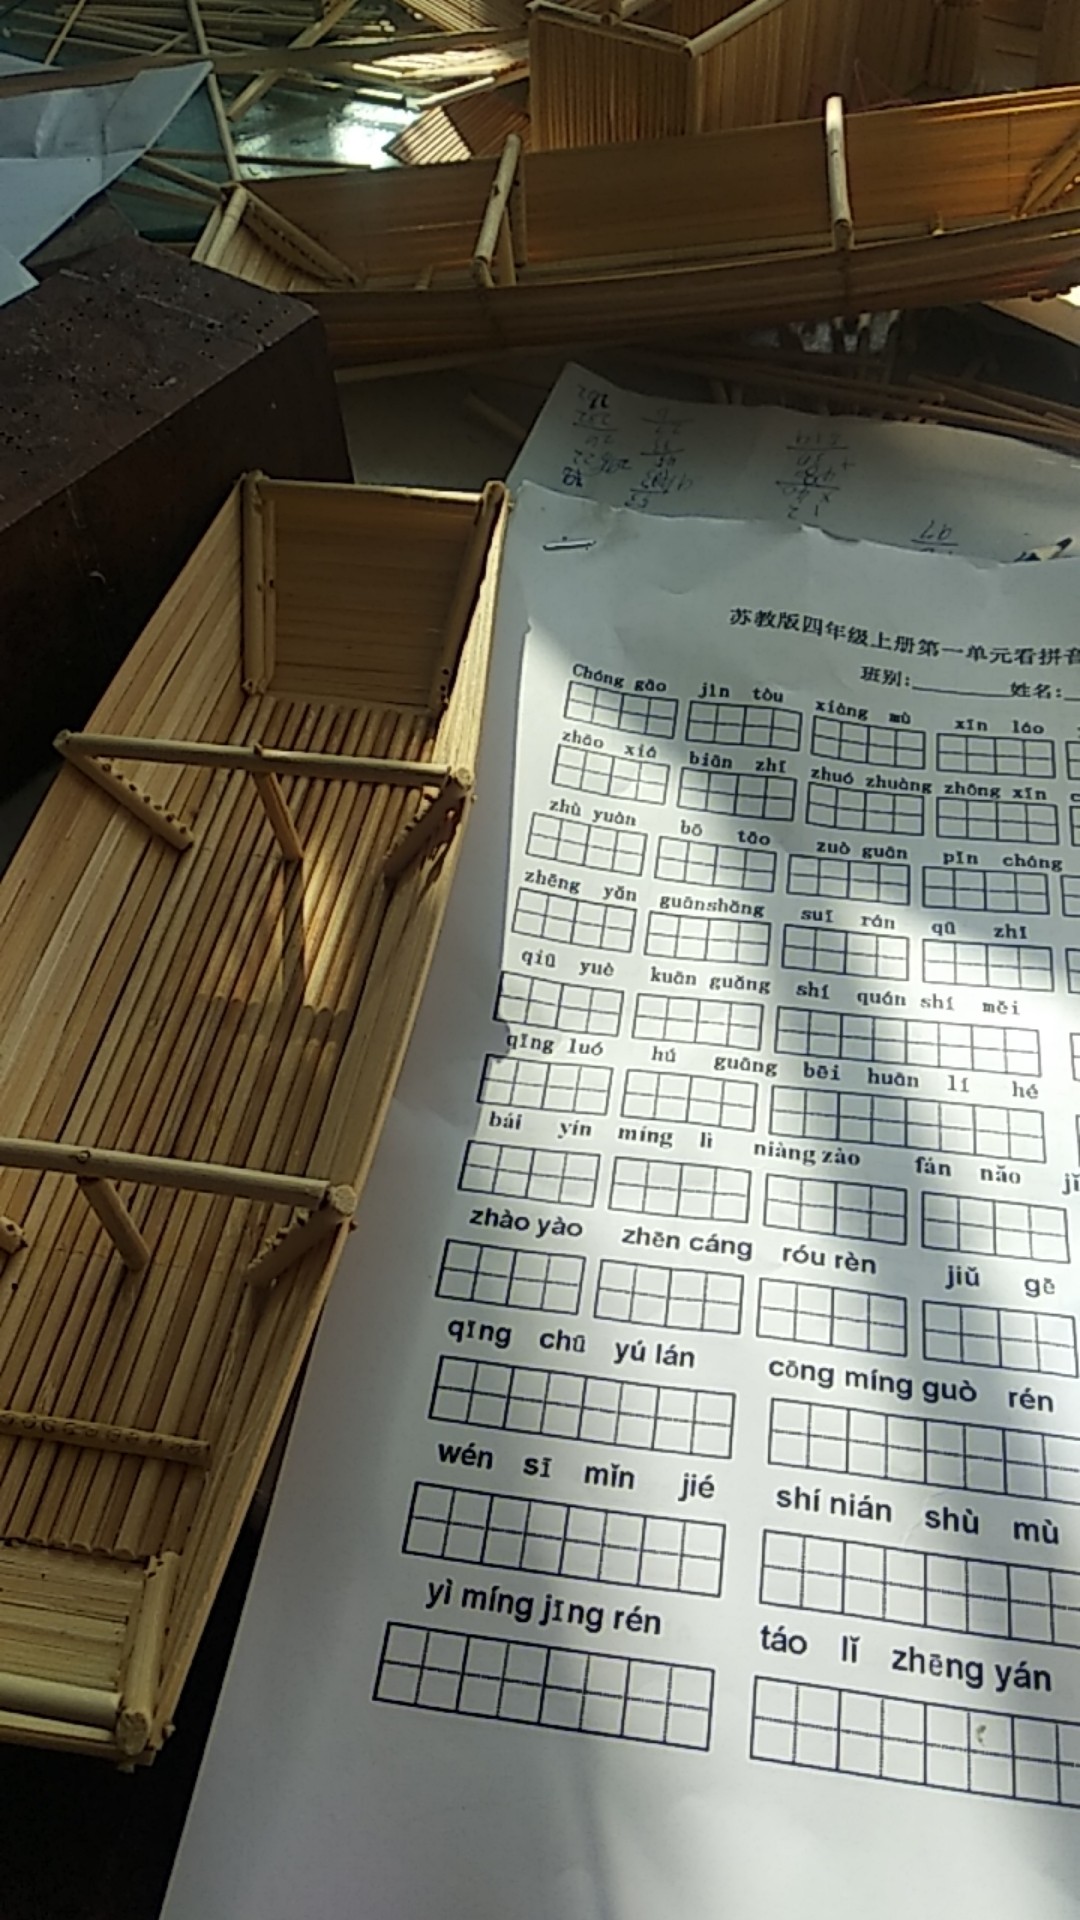 苏教版四年级上册第一单元看拼音
班别:________姓名:
Chóng gāo jìn tòu xiàng mù xīn láo
zhāo xiá biān zhī zhuó zhuàng zhōng xīn
zhù yuàn bō tāo zuò guān pǐn cháng
zhēng yǎn guānshǎng suī rán qū zhī
qiū yuè kuān guǎng shí quán shí měi
qīng luó hú guāng bēi huān lí hé
bái yín míng lì niàng zào fán nǎo jǐ
zhào yào zhēn cáng róu rèn jiǔ gē
qīng chū yú lán cōng míng guò rén
wén sī mǐn jié shí nián shù mù
yì míng jīng rén táo lǐ zhēng yán